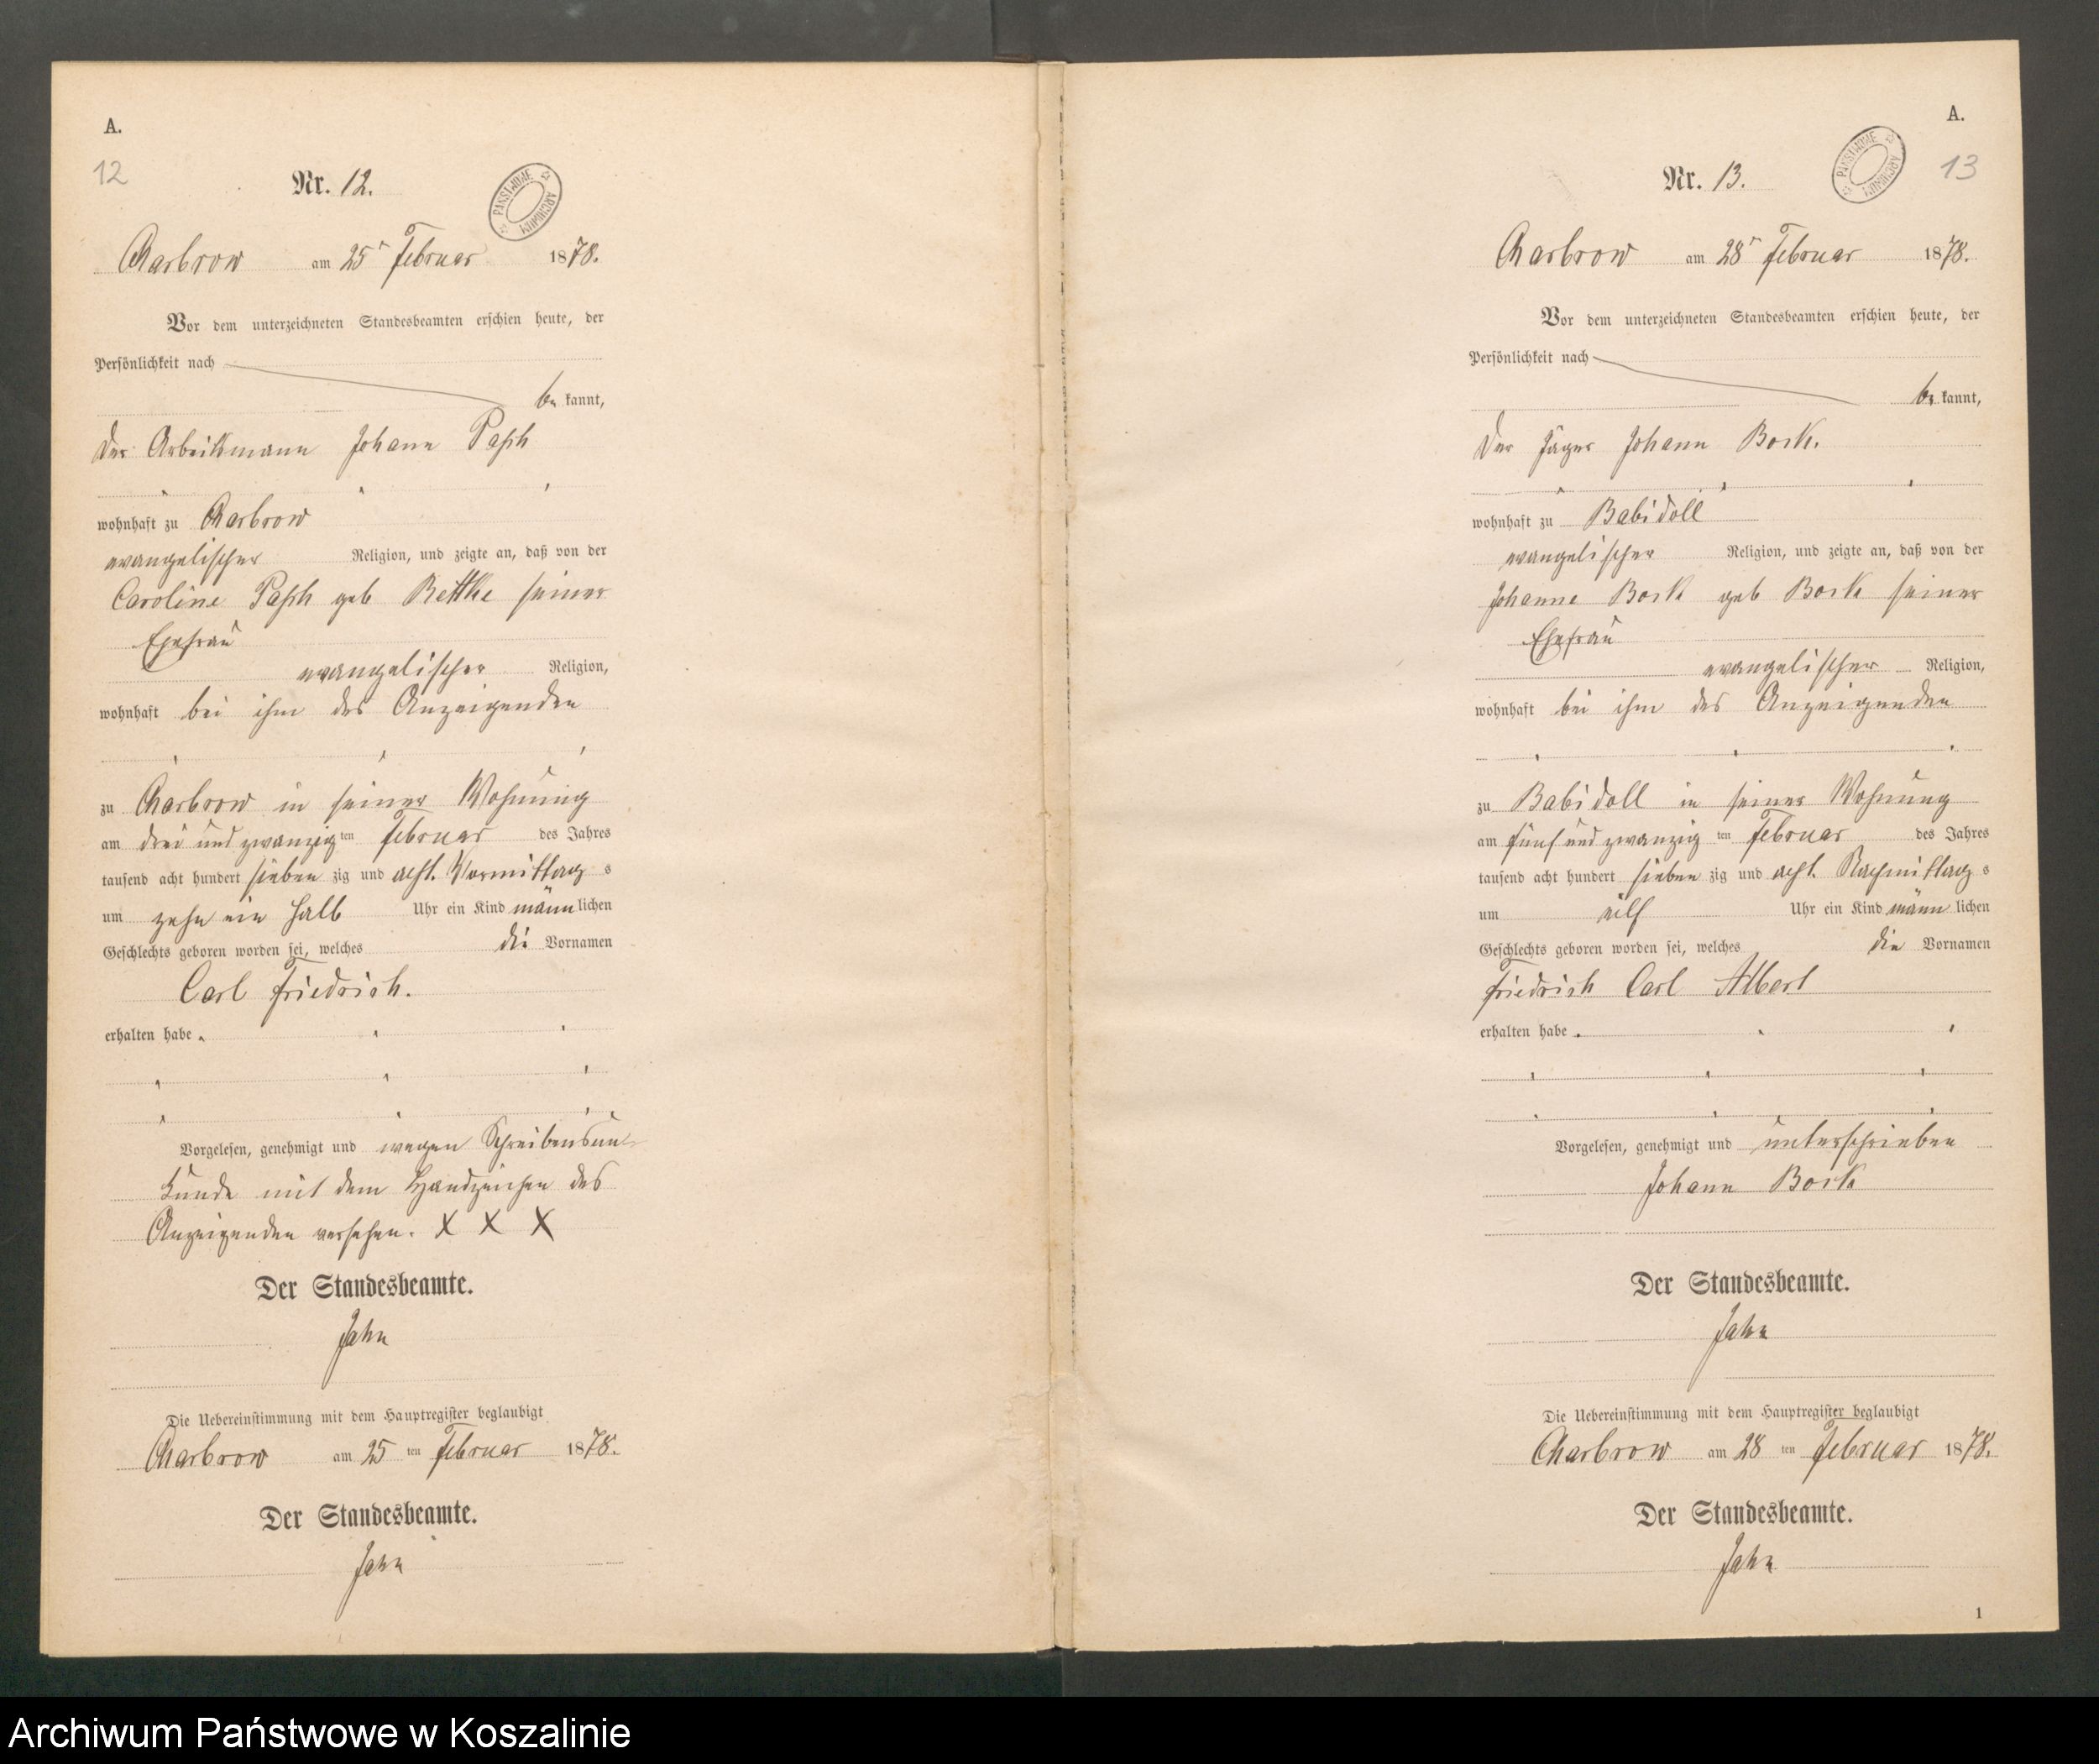 A.
12
Nr. 12.
PAŃSTWOWE ARCHIWUM
Charbrow am 25t Februar 1878.
Vor dem unterzeichneten Standesbeamten erschien heute, der
Persönlichkeit nach
be kannt,
der Arbeitsmann Johann Pasch
wohnhaft zu Charbrow
evangelischer Religion, und zeigte an, daß von der
Caroline Pasch geb Rettke seiner
Ehefrau
evangelischer Religion,
wohnhaft bei ihm des Anzeigenden
zu Charbrow in seiner Wohnung
am drei und zwanzig ten Februar des Jahres
tausend acht hundert sieben zig und acht. Vormittag s
um zehn ein halb Uhr ein Kind männ lichen
Geschlechts geboren worden sei, welches die Vornamen
Carl Friedrich.
erhalten habe
Vorgelesen, genehmigt und wegen Schreibensun-
kunde mit dem Handzeichen des
Anzeigenden versehen. X X X
Der Standesbeamte.
Jahn
Die Uebereinstimmung mit dem Hauptregister beglaubigt
Charbrow am 25 ten Februar 1878.
Der Standesbeamte.
Jahn
A.
13
Nr. 13.
PAŃSTWOWE ARCHIWUM
Charbrow am 28t Februar 1878.
Vor dem unterzeichneten Standesbeamten erschien heute, der
Persönlichkeit nach
be kannt,
der Jäger Johann Bork.
wohnhaft zu Babidoll
evangelischer Religion, und zeigte an, daß von der
Johanne Bork geb Bork seiner
Ehefrau
evangelischer Religion,
wohnhaft bei ihm des Anzeigenden
zu Babidoll in seiner Wohnung
am fünf und zwanzig ten Februar des Jahres
tausend acht hundert sieben zig und acht. Nachmittag s
um eilf Uhr ein Kind männ lichen
Geschlechts geboren worden sei, welches die Vornamen
Friedrich Carl Albert
erhalten habe
Vorgelesen, genehmigt und unterschrieben
Johann Bork
Der Standesbeamte.
Jahn
Die Uebereinstimmung mit dem Hauptregister beglaubigt
Charbrow am 28 ten Februar 1878.
Der Standesbeamte.
Jahn
1
Archiwum Państwowe w Koszalinie